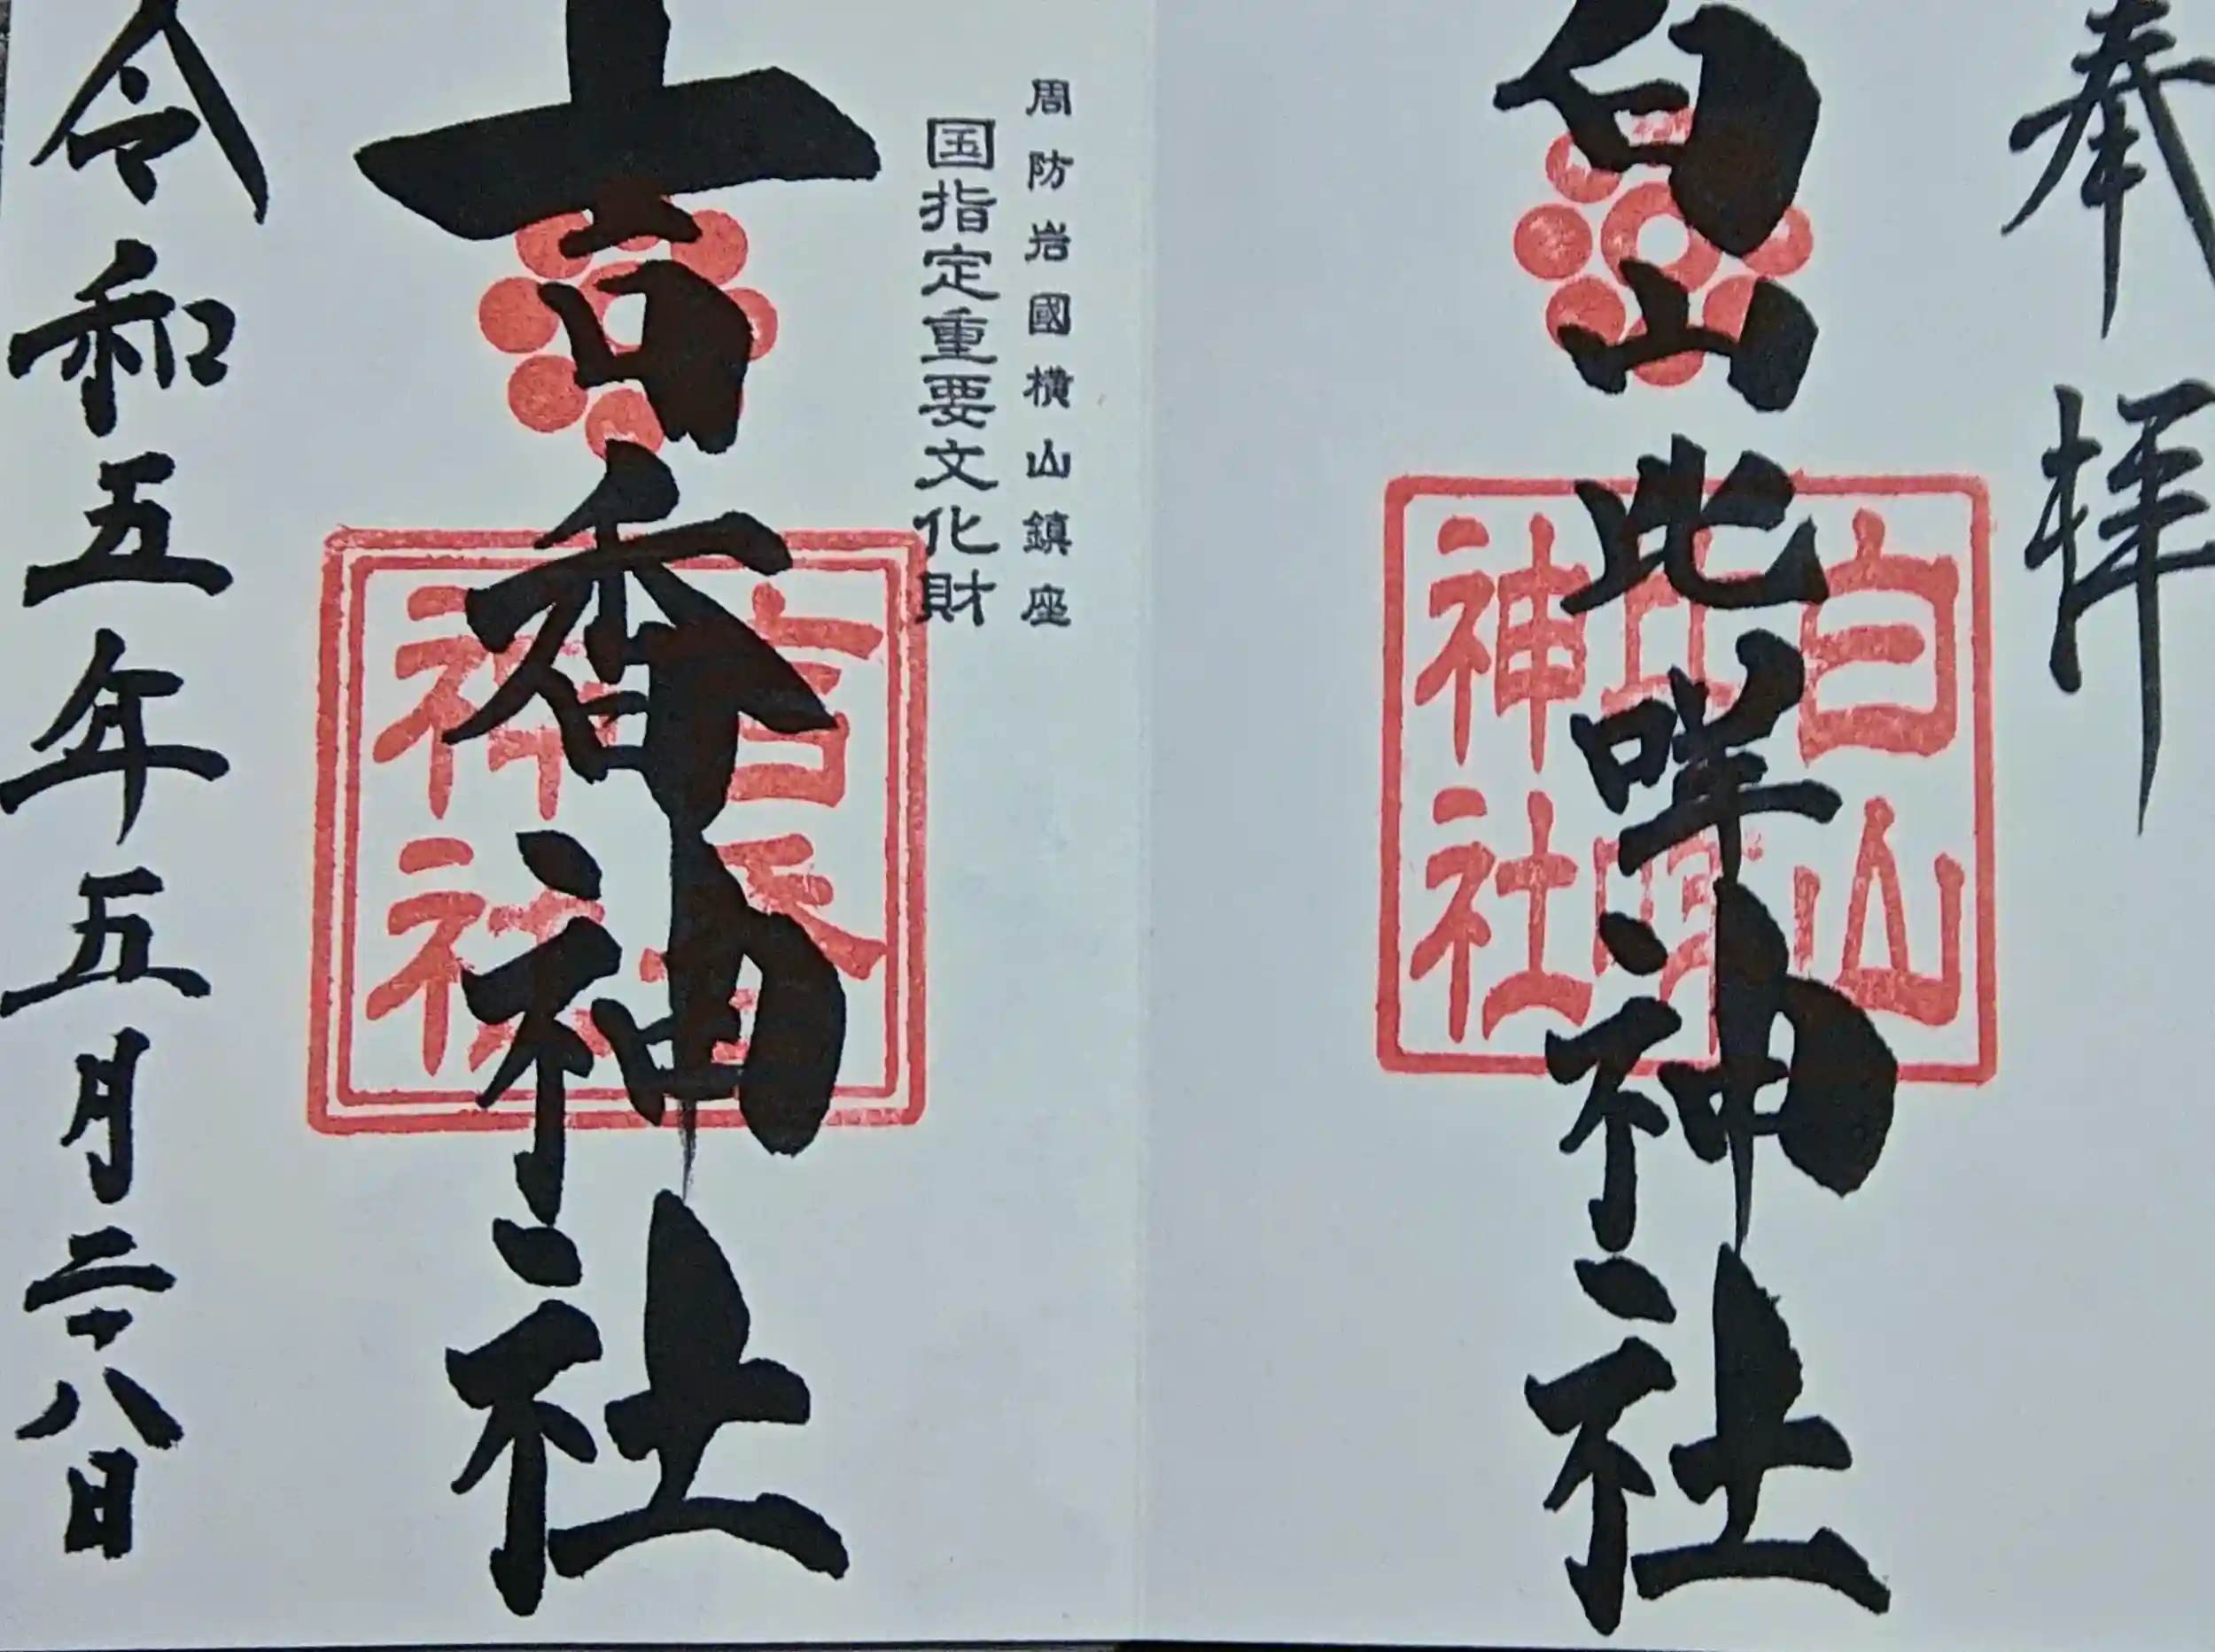 奉拝
白山比咩神社
白山比咩神社
周防岩國横山鎮座
国指定重要文化財
吉香神社
吉香神社
令和五年五月二十八日